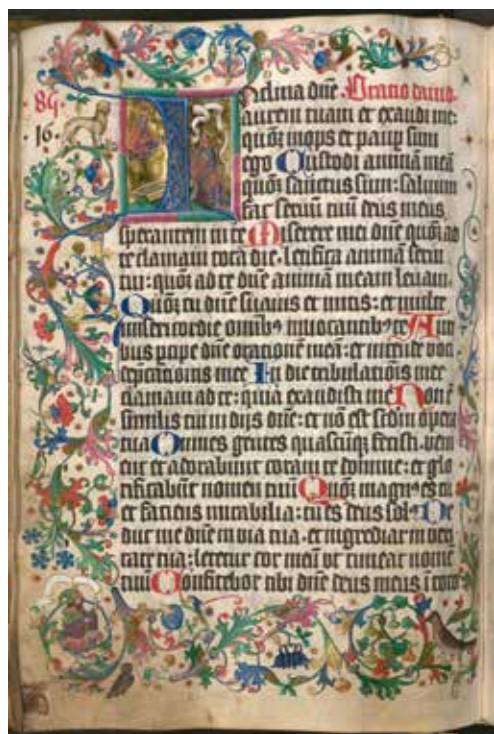 86.
.16.
Inclina dñe Oratio dauid.
aurem tuam et exaudi me:
quoȝ inops et paup sum
ego Custodi animā meā
quoȝ sanctus sum: saluum
fac seruū tuū deus meus
sperantem in te Miserere mei dñe quoȝ ad
te clamaui tota die: letifica animā serui
tui: quoȝ ad te dñe animā meam leuaui.
Quoȝ tu dñe suauis et mitis: et multe
misericordie omibꝰ inuocantibꝰ te Auri
bus pcipe dñe orationē meā: et intende voci
depcationis mee In die tribulatiōis mee
clamaui ad te: quia exaudisti me Non ē
similis tui in dijs dñe: et nō est scdm opera
tua Omnes gentes quascūqꝫ fecisti: veni
ent et adorabunt coram te domine: et glo
rificabūt nomen tuū Quoȝ magnꝰ es tu
et faciens mirabilia: tu es deus solꝰ De
duc me dñe in via tua: et ingrediar in veri
tate tua: letetur cor meū vt timeat nomē
tuū Confitebor tibi dñe deus meus ī toto